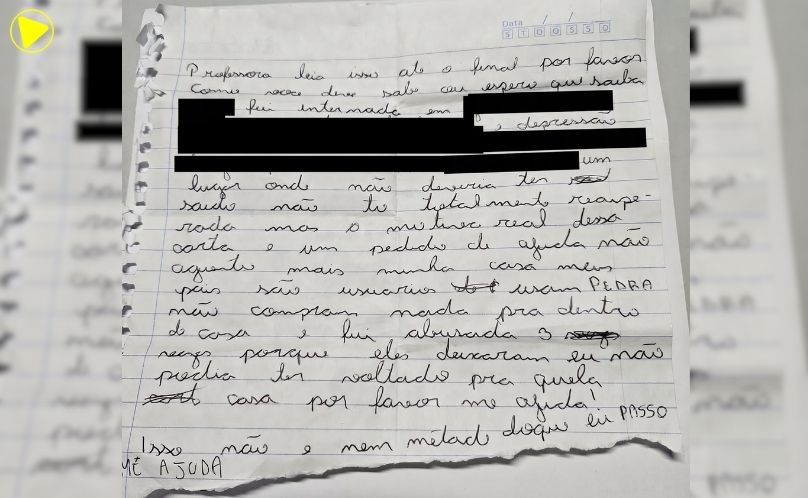 Data / /
S T Q Q S S D
Professora leia isso até o final por favor
Como voce deve sabe ou espero que saiba
fui internada em
e depressão
um
lugar onde não deveria ter
saido não to totalmente recupe-
rada mas o motivo real dessa
carta e um pedido de ajuda não
aguento mais minha casa meus
pais são usuarios usam PEDRA
não compram nada pra dentro
de casa e fui abusada 3
vezes porque eles deixaram eu não
podia ter voltado pra quela
casa por favor me ajuda!
Isso não e nem métade doque eu PASSO
ME AJUDA